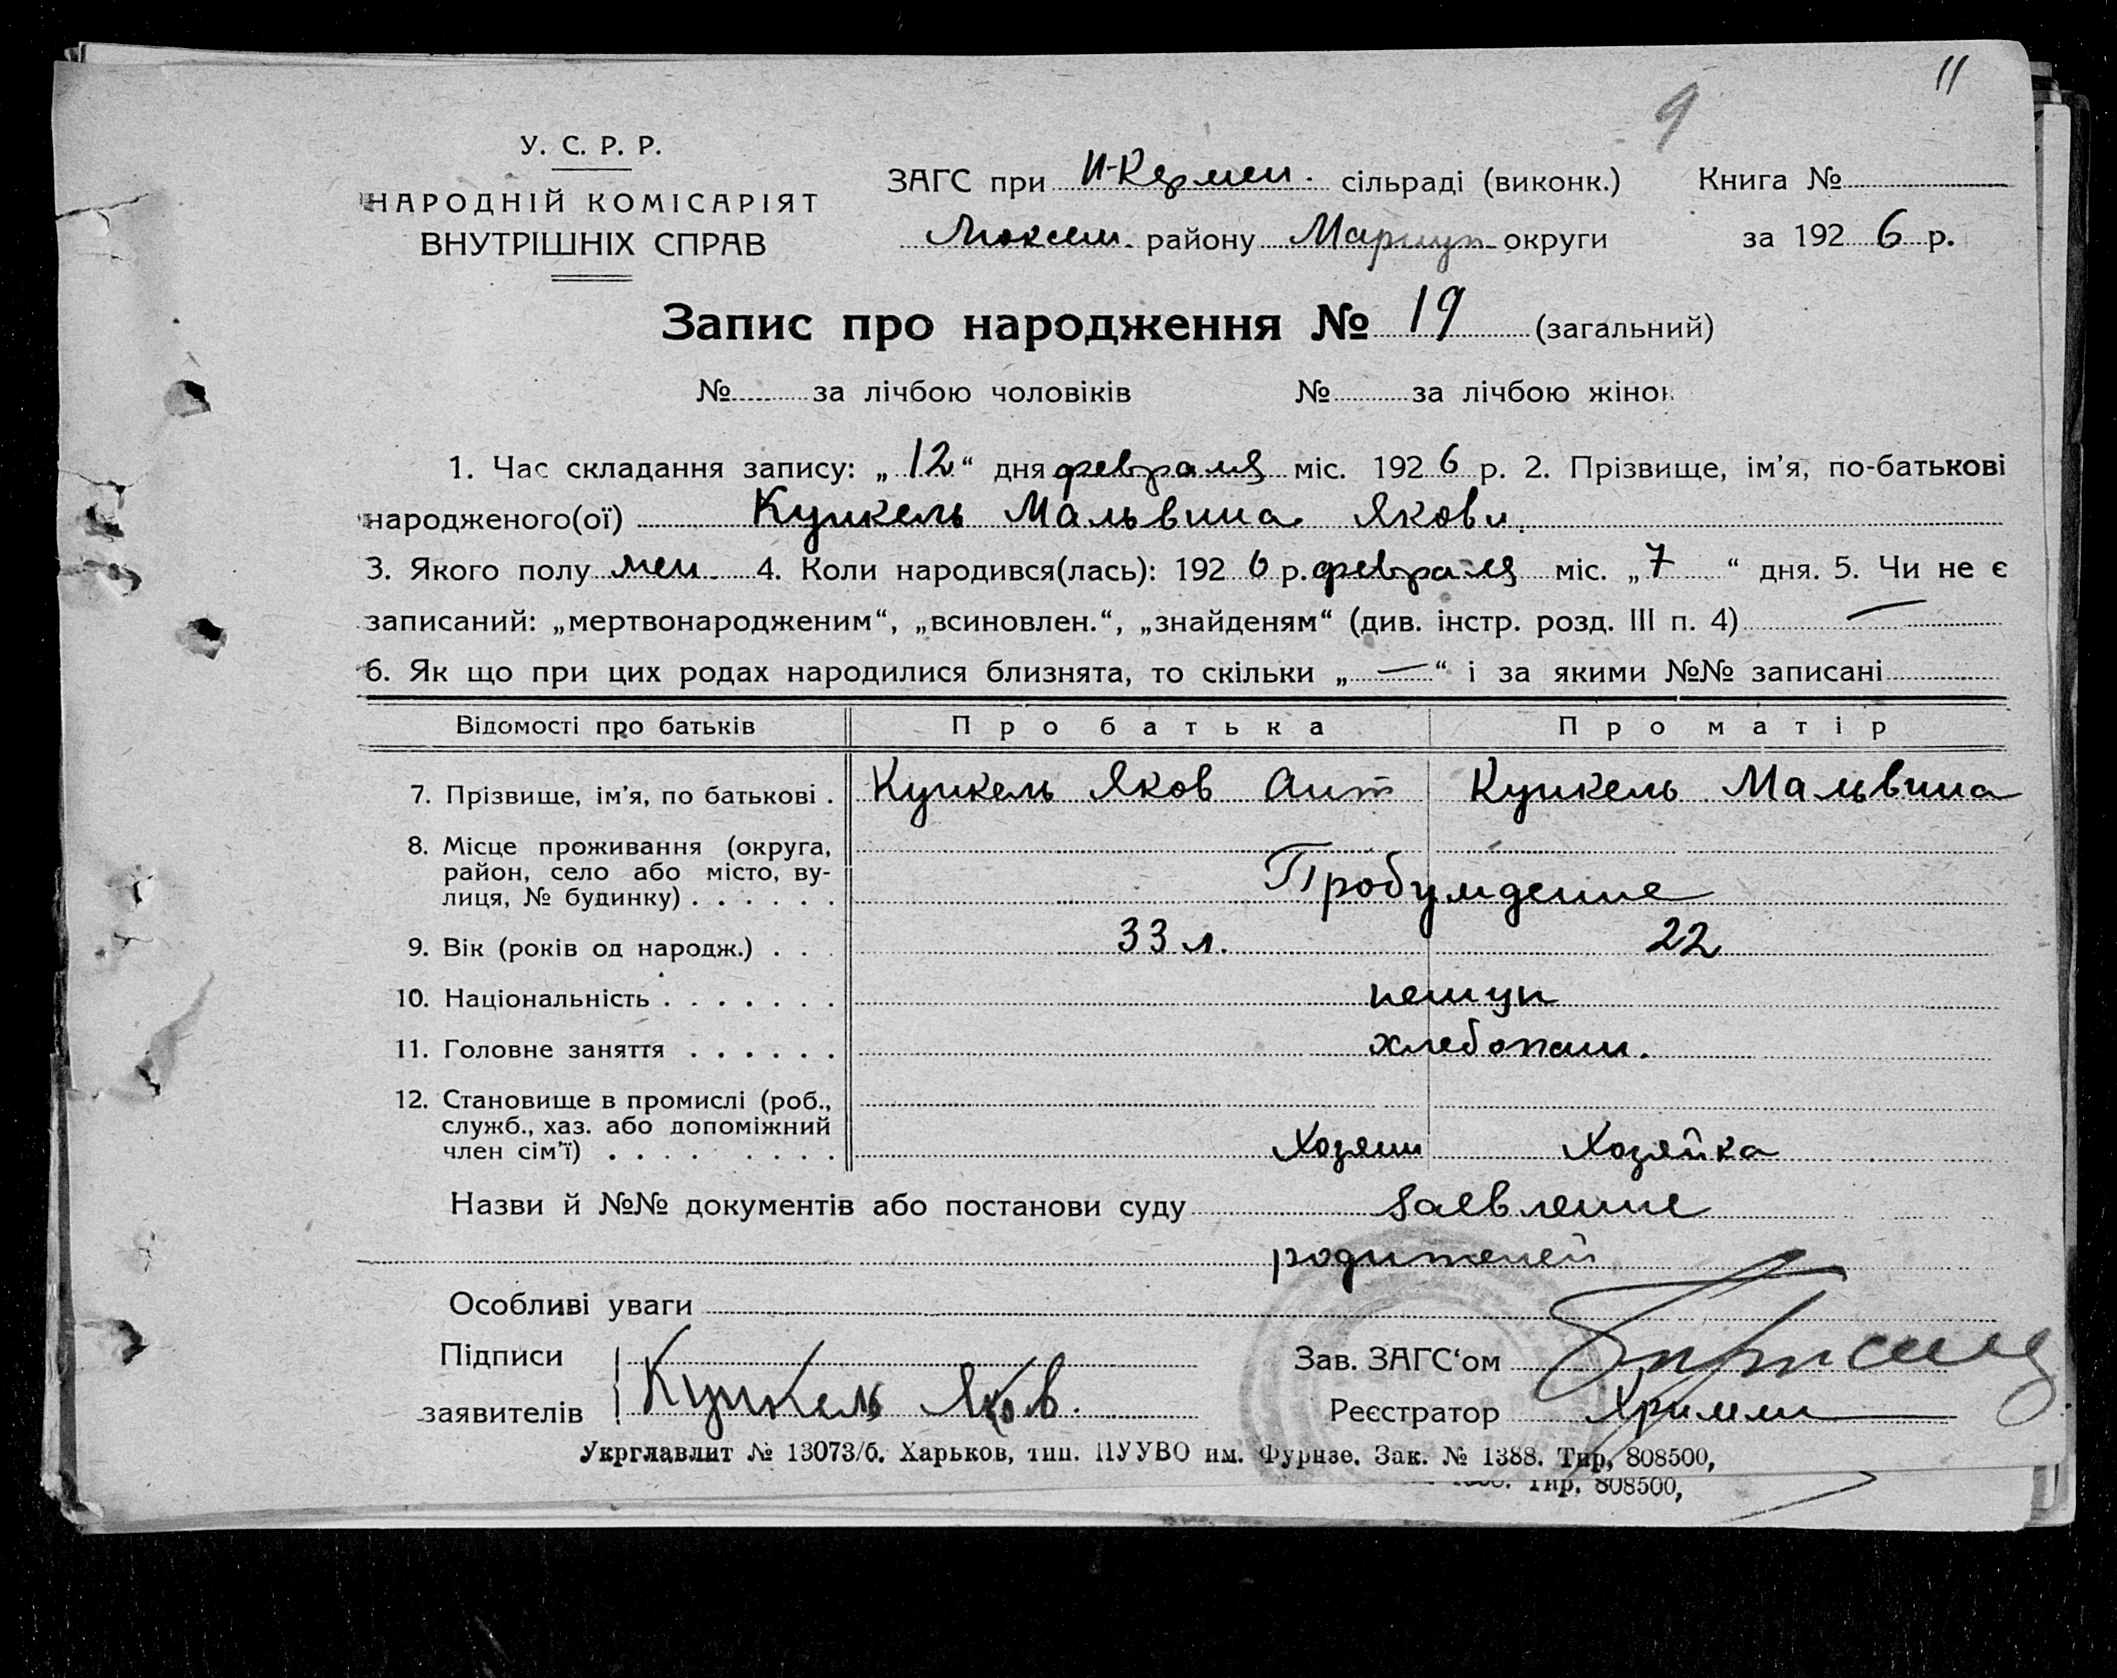 11
9
У. С. Р. Р.
НАРОДНІЙ КОМІСАРІЯТ
ВНУТРІШНІХ СПРАВ
ЗАГС при И-Кермен. сільраді (виконк.) Книга №
Люксем. району Мариуп. округи за 192 6 р.
Запис про народження № 19 (загальний)
№ за лічбою чоловіків № за лічбою жінок
1. Час складання запису: „ 12 “ дня февраля міс. 192 6 р. 2. Прізвище, ім’я, по-батькові
народженого(ої) Кункель Мальвина Якови.
3. Якого полу жен. 4. Коли народився(лась): 192 6 р. февраля міс. „ 7 “ дня. 5. Чи не є
записаний: „мертвонародженим“, „всиновлен.“, „знайденям“ (див. інстр. розд. III п. 4) —
6. Як що при цих родах народилися близнята, то скільки „ — “ і за якими №№ записані
Відомості про батьків Про батька Про матір
7. Прізвище, ім’я, по батькові . Кункель Яков Ант Кункель Мальвина
8. Місце проживання (округа,
район, село або місто, ву-
лиця, № будинку) . . . . . . Пробуждение
9. Вік (років од народж.) . . . 33 л. 22
10. Національність . . . . . . . немцы
11. Головне заняття . . . . . . хлебопаш.
12. Становище в промислі (роб.,
служб., хаз. або допоміжний
член сім’ї) . . . . . . . . . Хозяин Хозяйка
Назви й №№ документів або постанови суду заевление
родителей
Особливі уваги
Підписи
заявителів Кункель Яков.
Зав. ЗАГС‘ом
Реєстратор
Укрглавлит № 13073/б. Харьков, тип. ПУУВО им. Фурнзе. Зак. № 1388. Тир, 808500,
1388. Тир, 808500,